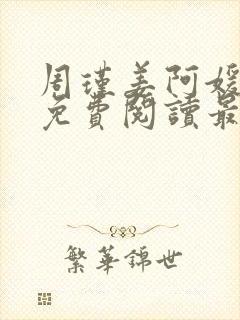 周瑾姜阿媛
免費閱讀最
繁華錦世